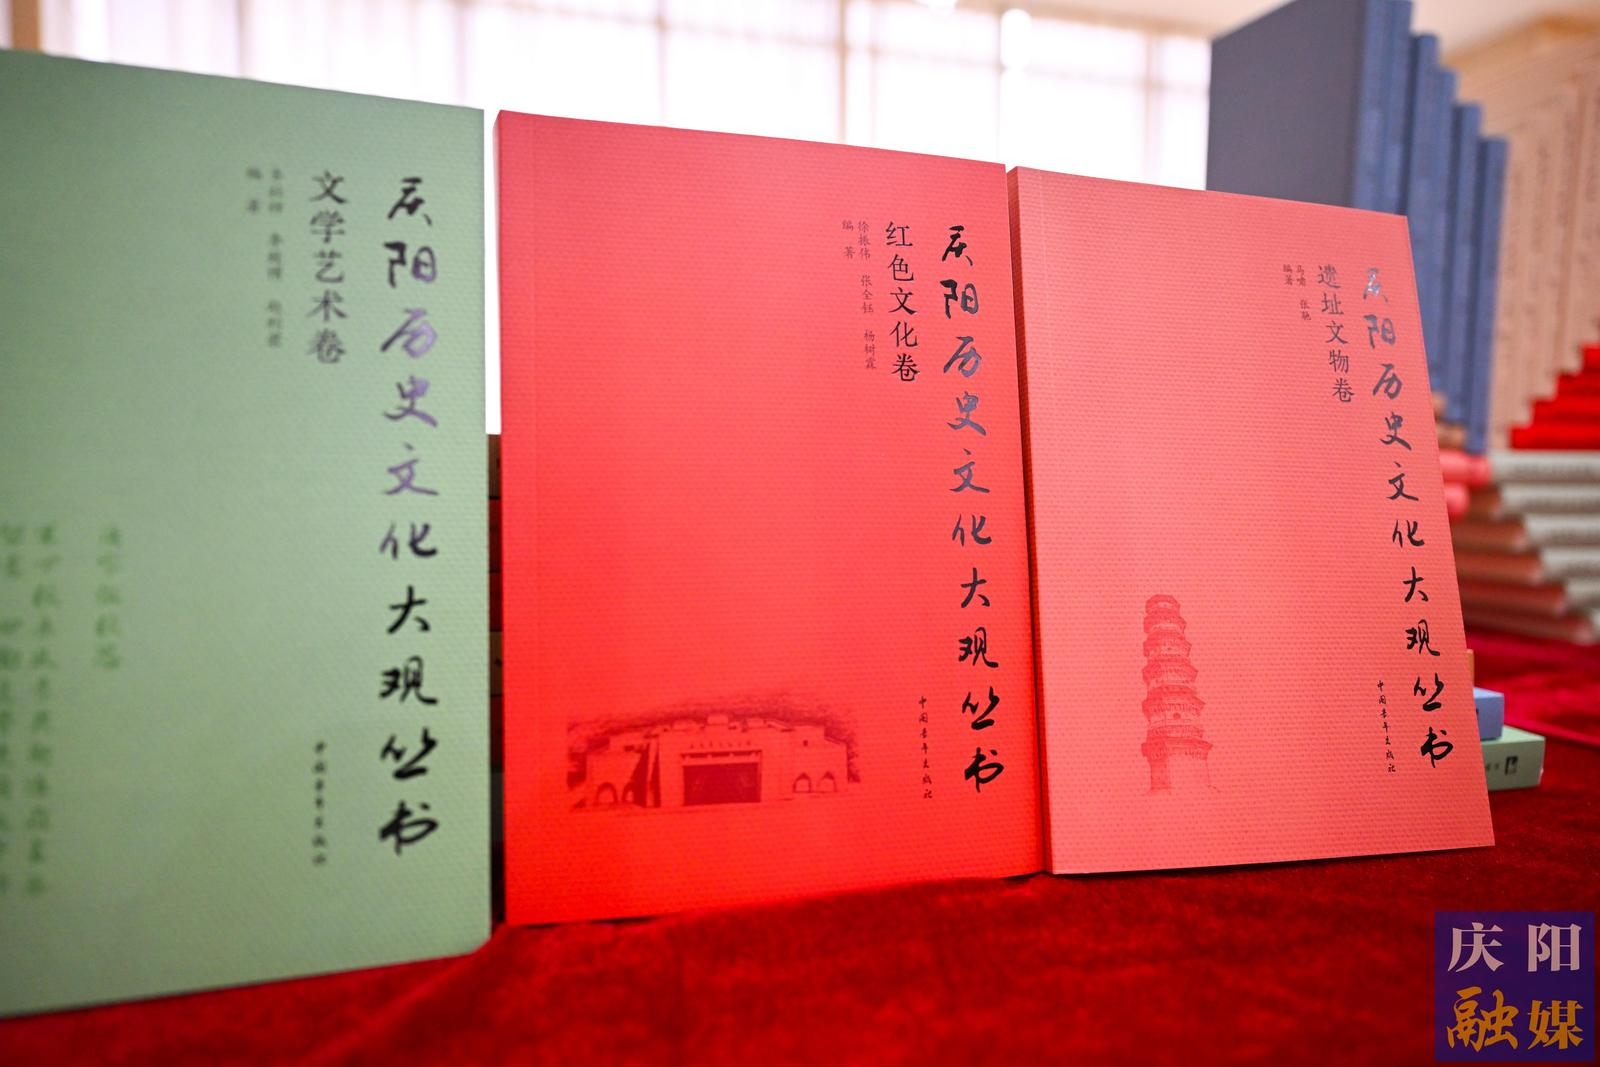 庆阳历史文化大观丛书
文学艺术卷
编 著
中国青年出版社
庆阳历史文化大观丛书
红色文化卷
徐振伟 张全钰 杨树霖
编 著
中国青年出版社
庆阳历史文化大观丛书
遗址文物卷
马啸 张驰
编著
中国青年出版社
庆阳
融媒